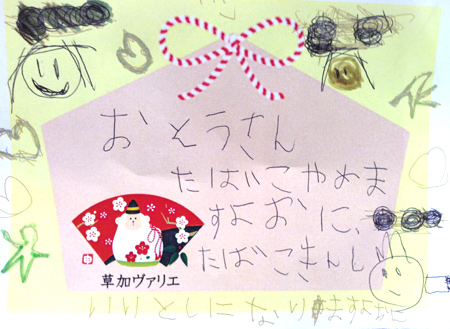 おとうさん
たばこやめま
すよおに、
たばこきんし
草加ヴァリエ
いいとしになりますよおに